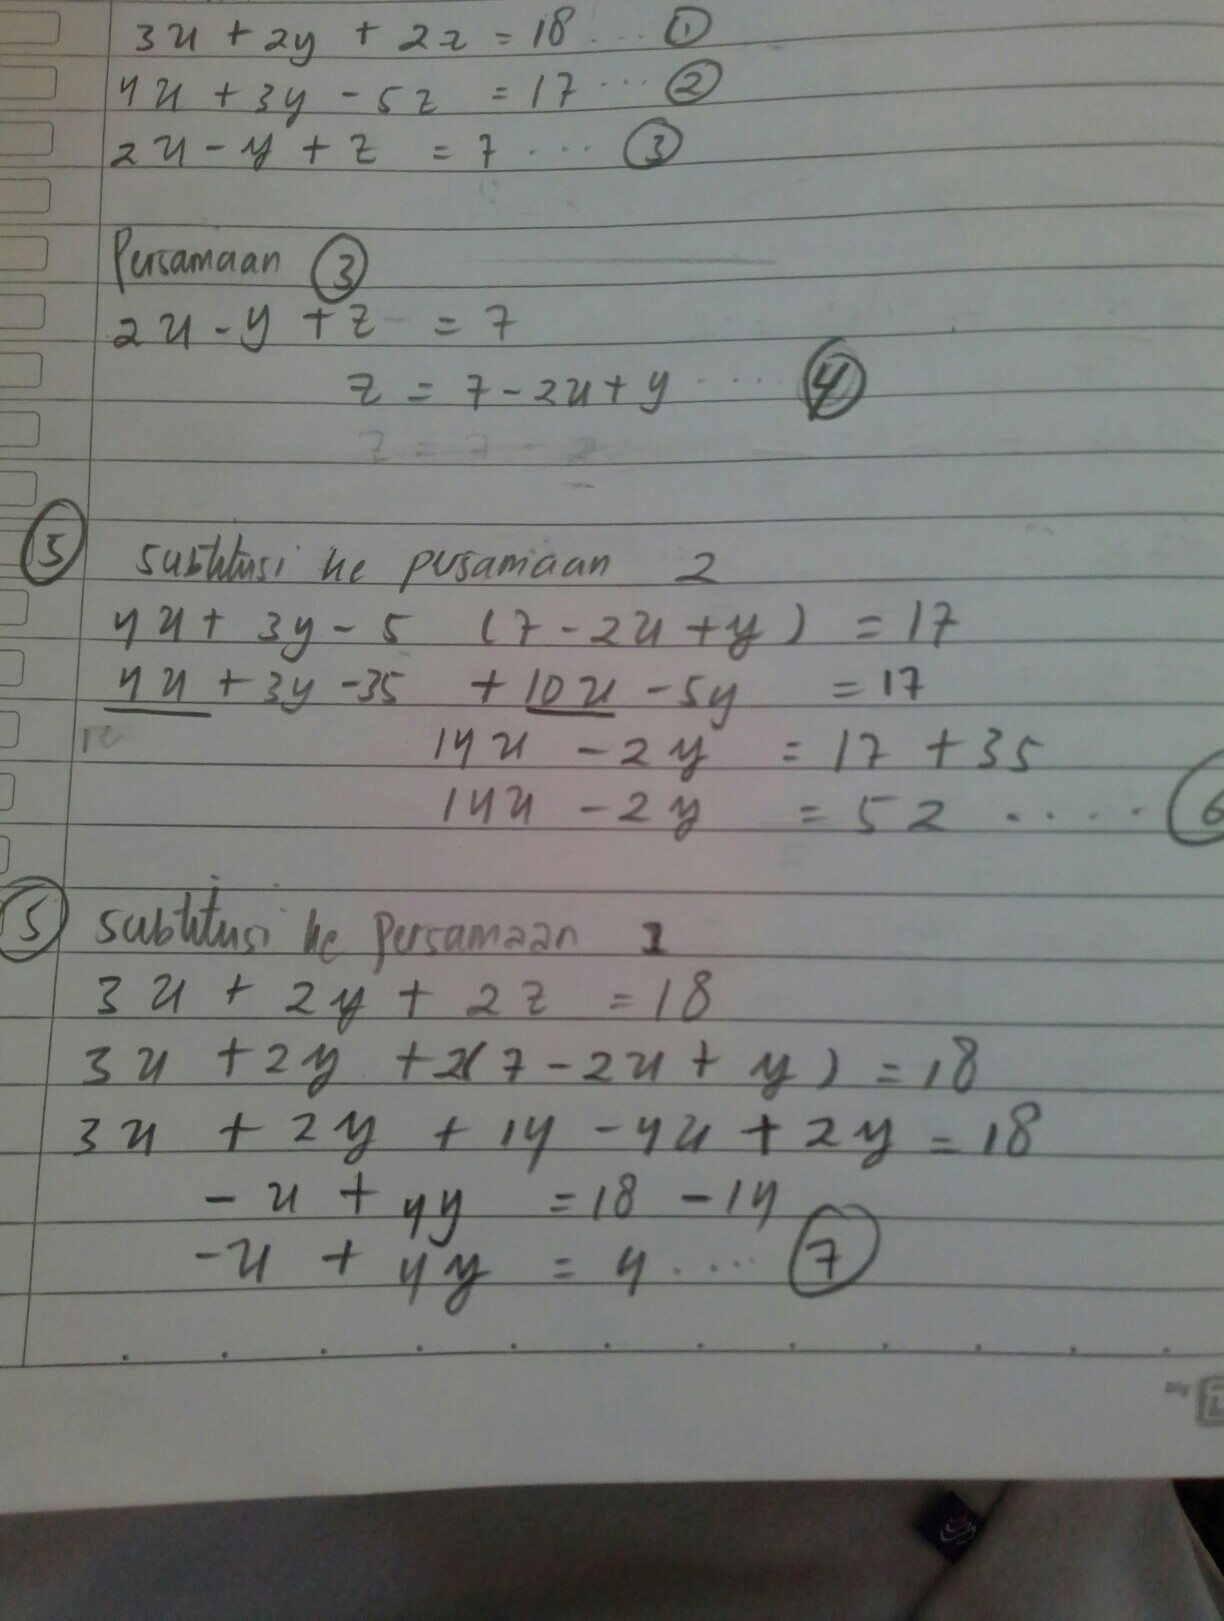 3x + 2y + 2z = 18 ... ①
4x + 3y - 5z = 17 ... ②
2x - y + z = 7 .... ③
Persamaan ③
2x - y + z = 7
z = 7 - 2x + y .... ④
z = 7 - 2
⑤ subtitusi ke persamaan 2
4x + 3y - 5 (7 - 2x + y) = 17
4x + 3y - 35 + 10x - 5y = 17
14x - 2y = 17 + 35
14x - 2y = 52 ..... ⑥
⑤ subtitusi ke Persamaan 1
3x + 2y + 2z = 18
3x + 2y + 2(7 - 2x + y) = 18
3x + 2y + 14 - 4x + 2y = 18
- x + 4y = 18 - 14
- x + 4y = 4 .... ⑦